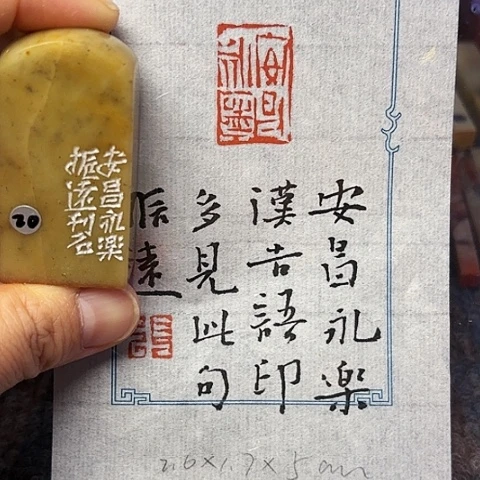 安昌永樂
安昌永樂
漢吉語印
多見此句
振遠
安昌永樂
振遠刊石
20
2.6×1.7×5cm